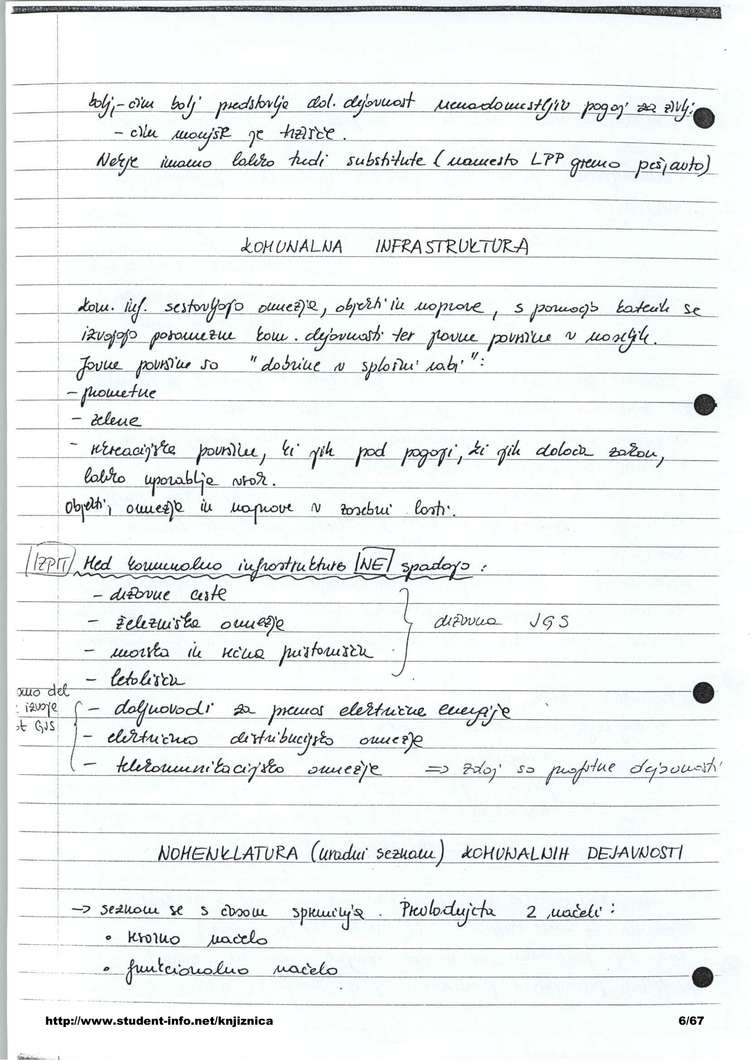 bolj, - čim bolj predstavlja dol. dejavnost nenadomestljiv pogoj za življ.
- čim manjše je tržišče.
Nekje imamo lahko tudi substitute (namesto LPP gremo peš, avto)
KOMUNALNA INFRASTRUKTURA
Kom. inf. sestavljajo omrežja, objekti in naprave, s pomočjo katerih se
izvajajo posamezne kom. dejavnosti ter javne površine v naseljih.
Javne površine so "dobrine v splošni rabi":
- prometne
- zelene
- rekreacijske površine, ki jih pod pogoji, ki jih določa zakon,
lahko uporablja vsak.
Objekti, omrežja in naprave v zasebni lasti.
IZPIT Med komunalno infrastrukturo NE spadajo:
- državne ceste
- železniško omrežje
državna JGS
- morska in rečna pristanišča
- letališča
del
izvaja
GJS
- daljnovodi za prenos električne energije
- električno distribucijsko omrežje
- telekomunikacijsko omrežje => zdaj so profitne dejavnosti
NOMENKLATURA (uradni seznam) KOMUNALNIH DEJAVNOSTI
-> seznam se s časom spreminja. Prevladujeta 2 načeli:
• krovno načelo
• funkcionalno načelo
http://www.student-info.net/knjiznica
6/67